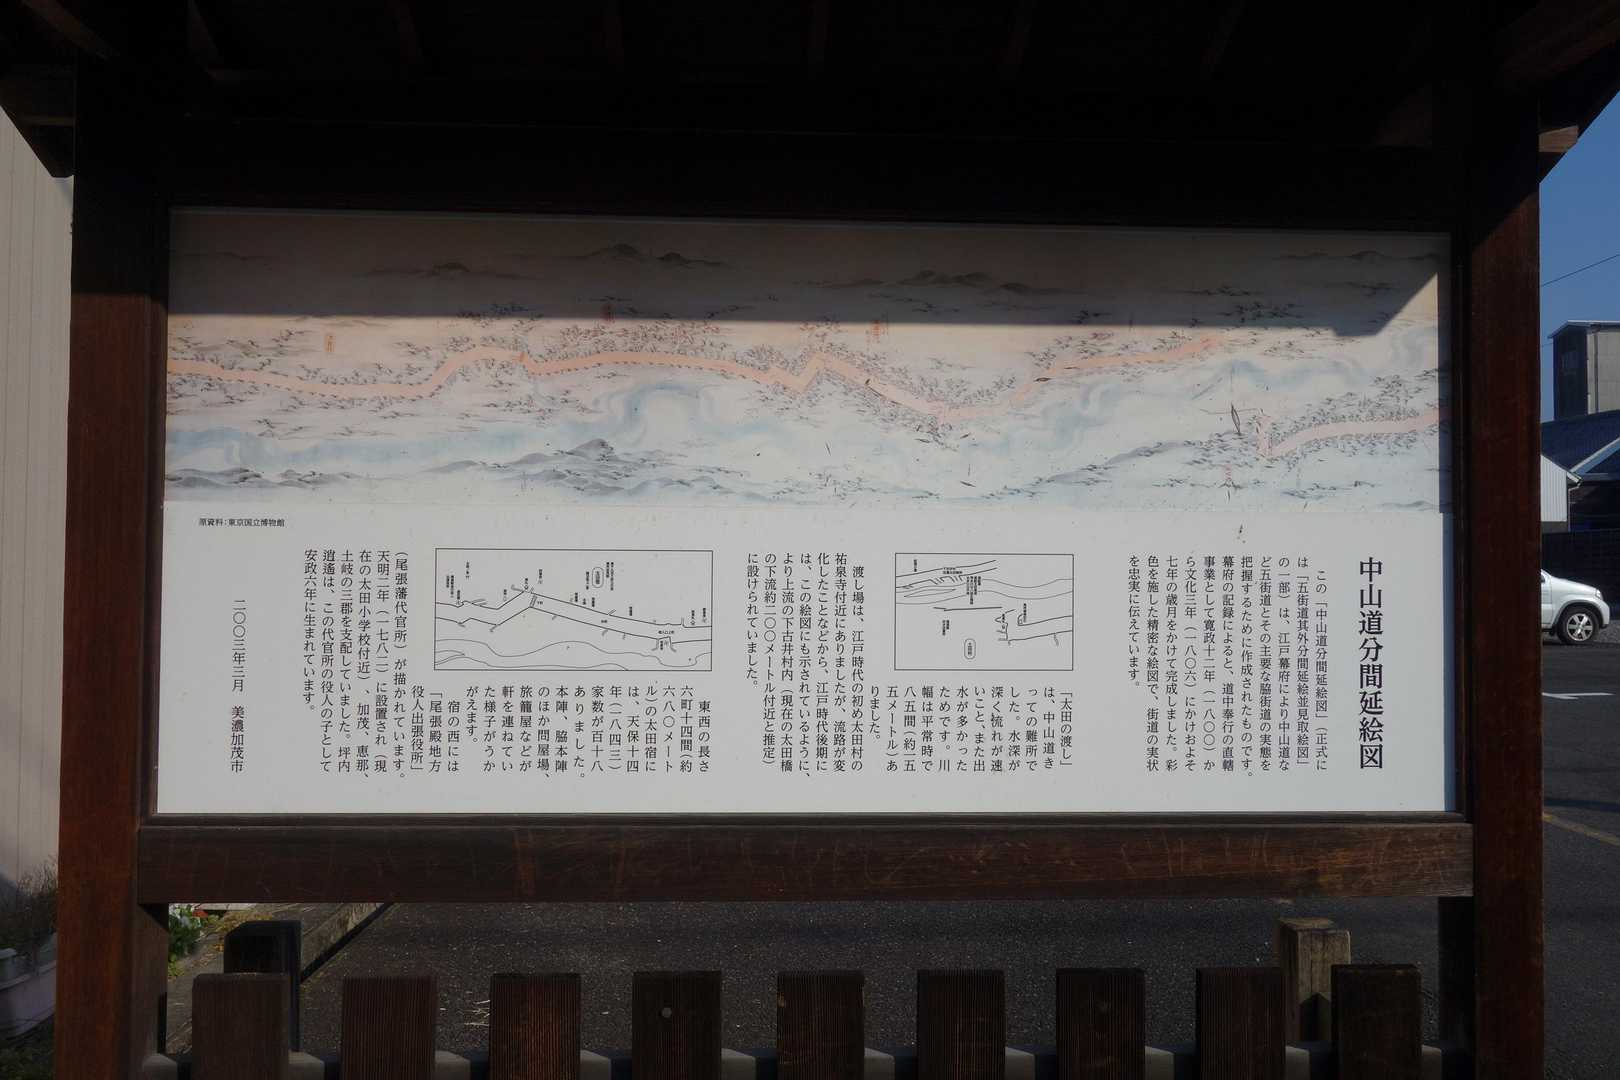 中山道分間延絵図
この「中山道分間延絵図」(正式に
は「五街道其外分間延絵並見取絵図」
の一部)は、江戸幕府により中山道な
ど五街道とその主要な脇街道の実態を
把握するために作成されたものです。
幕府の記録によると、道中奉行の直轄
事業として寛政十二年(一八〇〇)か
ら文化三年(一八〇六)にかけおよそ
七年の歳月をかけて完成しました。彩
色を施した精密な絵図で、街道の実状
を忠実に伝えています。
「太田の渡し」
は、中山道き
っての難所で
した。水深が
深く流れが速
いこと、また出
水が多かった
ためです。川
幅は平常時で
八五間(約一五
五メートル)あ
りました。
渡し場は、江戸時代の初め太田村の
祐泉寺付近にありましたが、流路が変
化したことなどから、江戸時代後期に
は、この絵図にも示されているように、
より上流の下古井村内(現在の太田橋
の下流約二〇〇メートル付近と推定)
に設けられていました。
東西の長さ
六町十四間(約
六八〇メート
ル)の太田宿に
は、天保十四
年(一八四三)
家数が百十八
ありました。
本陣、脇本陣
のほか問屋場、
旅籠屋などが
軒を連ねてい
た様子がうか
がえます。
宿の西には
「尾張殿地方
役人出張役所」
(尾張藩代官所)が描かれています。
天明二年(一七八二)に設置され(現
在の太田小学校付近)、加茂、恵那、
土岐の三郡を支配していました。坪内
逍遙は、この代官所の役人の子として
安政六年に生まれています。
二〇〇三年三月 美濃加茂市
原資料:東京国立博物館